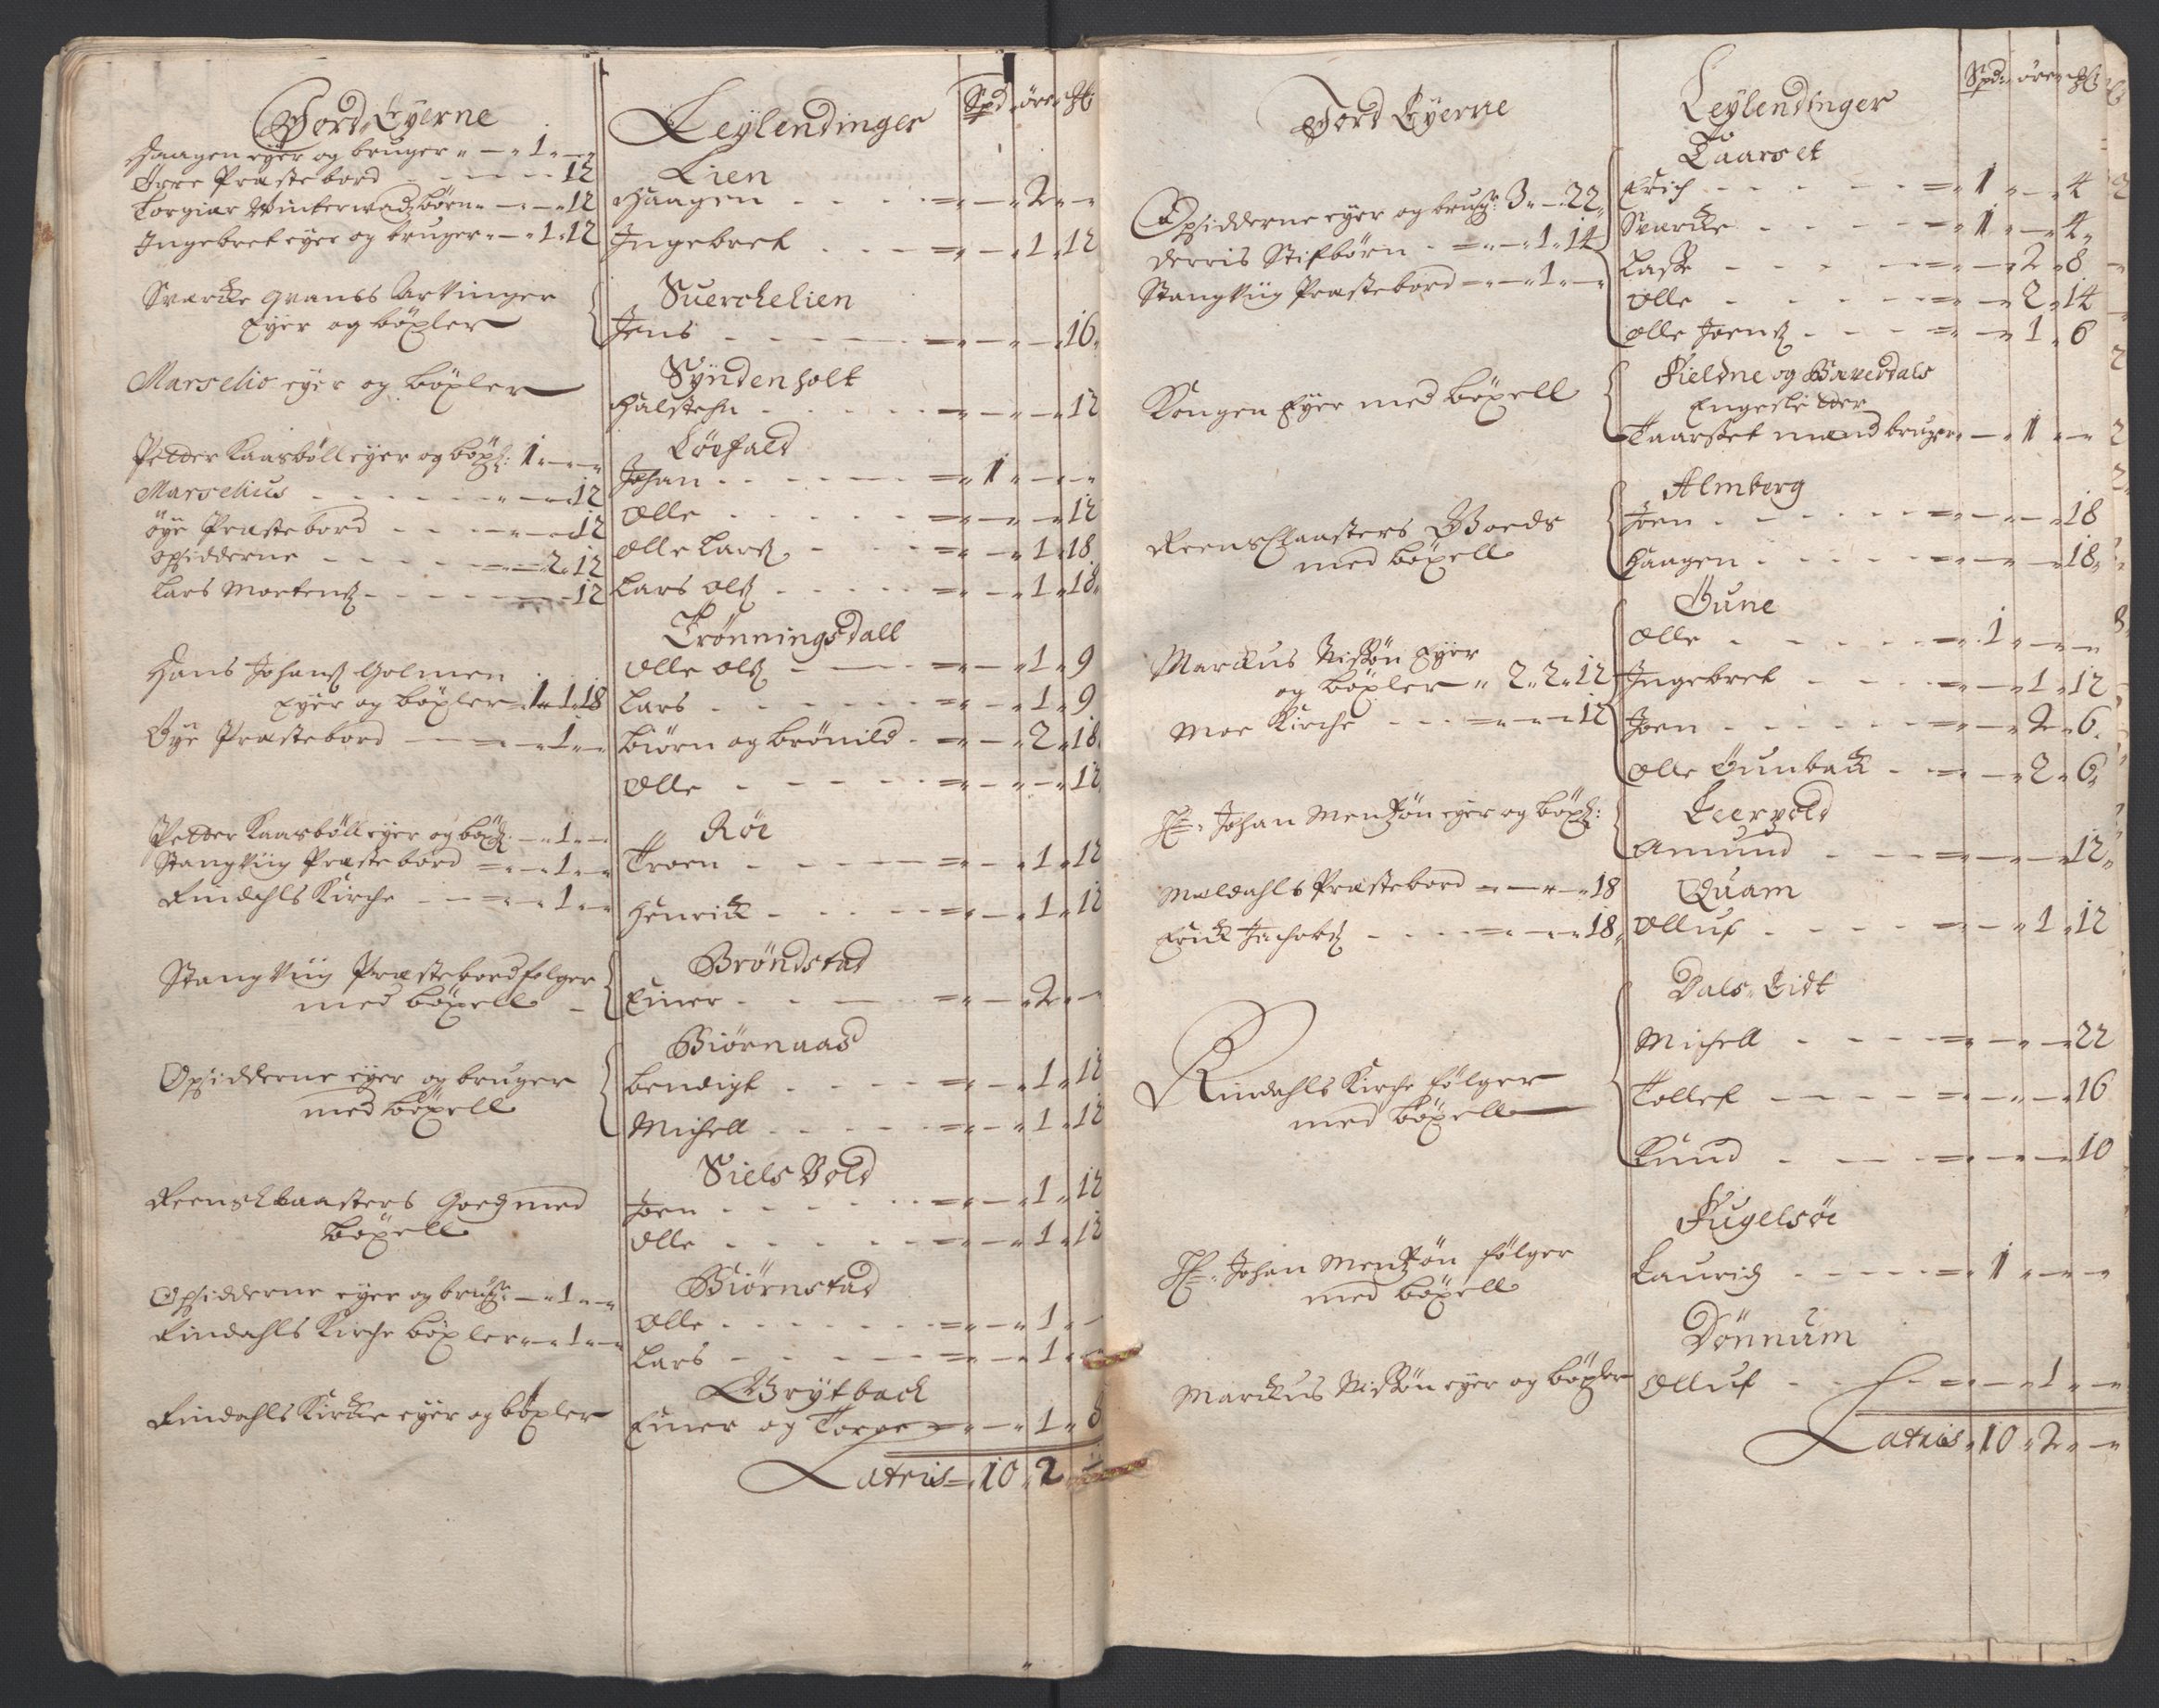 Jord Eyerne
Haagen eyer og bruger " — " 1 " — "
Øyee Præstebord - - - - 12
Torgiær Winterwadz børn " — " — " 12
Ingebret eyer og bruger " — " 1 " 12
Sværcke Arvinger
Eyer og böxler
Marselio eyer og böxler
Pedder Kaarböll eyer og böxl: 1 " — " —
Marselius - - - - " — " — 12
øye Præstebord - - - " — " — 12
Opsidderne - - - - = — " 2 " 12
Lars Mortens - - - - 12
Hans Johans Holmen
Eyer og böxler = 1 " 1 " 18
Øye Præstebord — — = — " 1 " —
Pedder Kaarböll eyer og böxl: — " 1 " —
Stangviig Præstebord = " — " 1 " —
Rindahls Kirche - - = " — " 1 " —
Stangviig Præstebord følger
med böxell
Opsidderne eyer og bruger
med böxell
Reens Claasters Goeds med
böxell
Opsidderne eyer og brug: — " 1 " —
Rindahls Kirche böxler " — " 1 " —
Rindahls Kircke eyer og böxler
Leylendinger Spd " øre " ℳ
Lien
Haagen - - - - = " — " 2 " —
Ingebret - - - = " — " 1 " 12
Suerchelien
Jens - - - - = " — " — " 16
Syndenholt
Halstehn - - - - = " — " — " 12
Löefald
Johan - - - - = " 1 " — " —
Olle - - - - = " — " — " 12
Olle Lars - - - = " — " 1 " 18
Lars Ols - - - = " — " 1 " 18
Trønningsdall
Olle Ols - - - = " — " 1 " 9
Lars - - - - = " — " 1 " 9
Biörn og Brönild - = " — " 2 " 18
Olle - - - - = " — " — " 12
Röe
Troen - - - - = " — " 1 " 12
Henrick - - - - = " — " 1 " 12
Bröndstad
Einer - - - - = " — " 2 " —
Biörnaas
Bendigt - - - - = " — " 1 " 12
Michell - - - - = " — " 1 " 12
Siels Vold
Joen - - - - = " — " 1 " 12
Olle - - - - = " — " 1 " 12
Biörnstad
Olle - - - - = " — " 1 " —
Lars - - - - = " — " 1 " —
Grytback
Einer og Torge = " — " 1 " 8
Lateris = " 10 " 2 "
Jord Eyerne
Opsidderne eyer og brug: 3 " — " 22
derris Stifbörn - = " — " 1 " 14
Stangviig Præstebord = " — " 1 " —
Kongen Eyer med böxell
Reens Claasters Goeds
med böxell
Marckus Nissön Eyer
og böxler " 2 " 2 " 12
Moe Kirche - - - = " — " — " 12
Hr: Johan Mentzön eyer og böxl:
Meldahls Præstebord = " — " — " 18
Erick Jachobs - - - = " — " — " 18
Rindahls Kirche følger
med böxell
Hr: Johan Mentzön følger
med böxell
Marckus Nissön eyer og böxler
Leylendinger Spd " øre " ℳ
Taarset
Erich - - - - = " 1 " — " 4
Svercke - - - - = " 1 " — " 4
Lasse - - - - = " — " 2 " 8
Olle - - - - = " — " 2 " 14
Olle Joens - - - = " — " 1 " 6
Fieldne og Bæverdals
Engesletter
Taarset mænd bruger " — " 1 " —
Almberg
Joen - - - - = " — " — " 18
Haagen - - - - = " — " — " 18
Öune
Olle - - - - = " 1 " — " —
Ingebret - - - = " — " 1 " 12
Joen - - - - = " — " 2 " 6
Olle Öunback - = " — " 2 " 6
Leervold
Amund - - - = " — " — " 12
Quam
Olluf - - - - = " — " 1 " 12
Dals Lidt
Michell - - - = " — " — " 22
Tollef - - - - = " — " — " 16
Knud - - - = " — " — " 10
Fugelsöe
Laurids - - - - = " 1 " — " —
Dönnum
Olluf - - - - = " — " 1 " —
Lateris " 10 " 2 " —